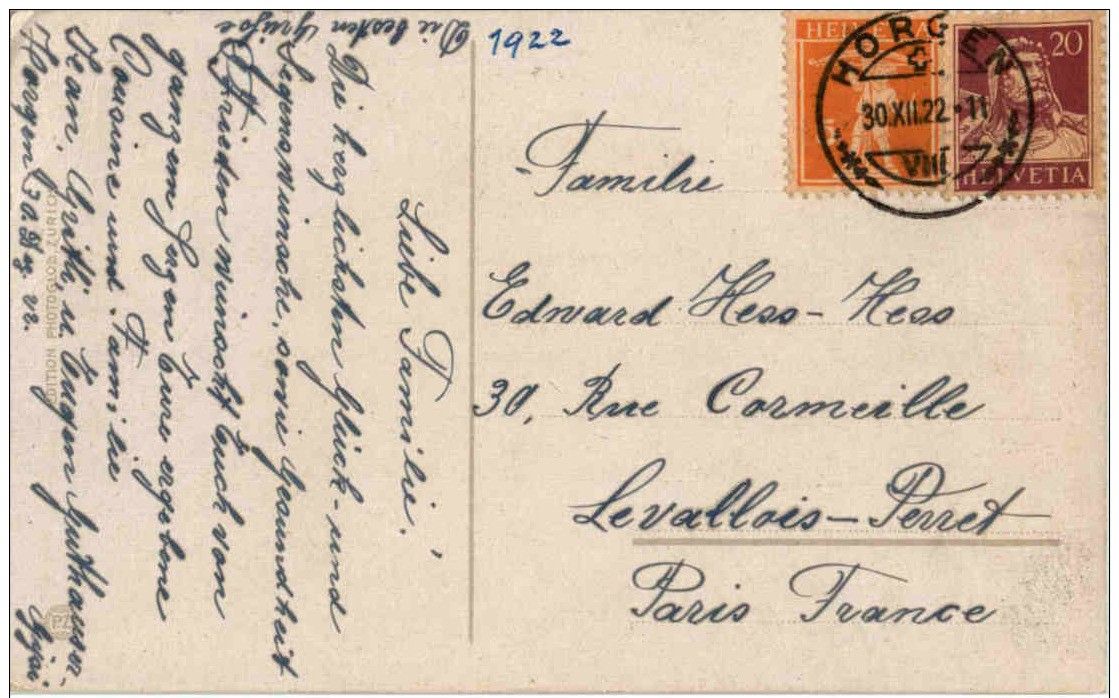 Die besten Grüße
1922
HELVETIA
20
HELVETIA
HORGEN
30.XII.22.-11
VIII
Liebe Familie!
Die herzlichsten Glück- und
Segenswünsche, sowie Gesundheit
Frieden wünscht Euch von
ganzem Herzen Eure ergebene
Cousine und Familie
Jean, u. Eugen
Horgen 30. 22.
EDITION PHOTOGLOB, ZURICH
PZ
Familie
Edward Hess-Hess
30, Rue Cormeille
Levallois-Perret
Paris France